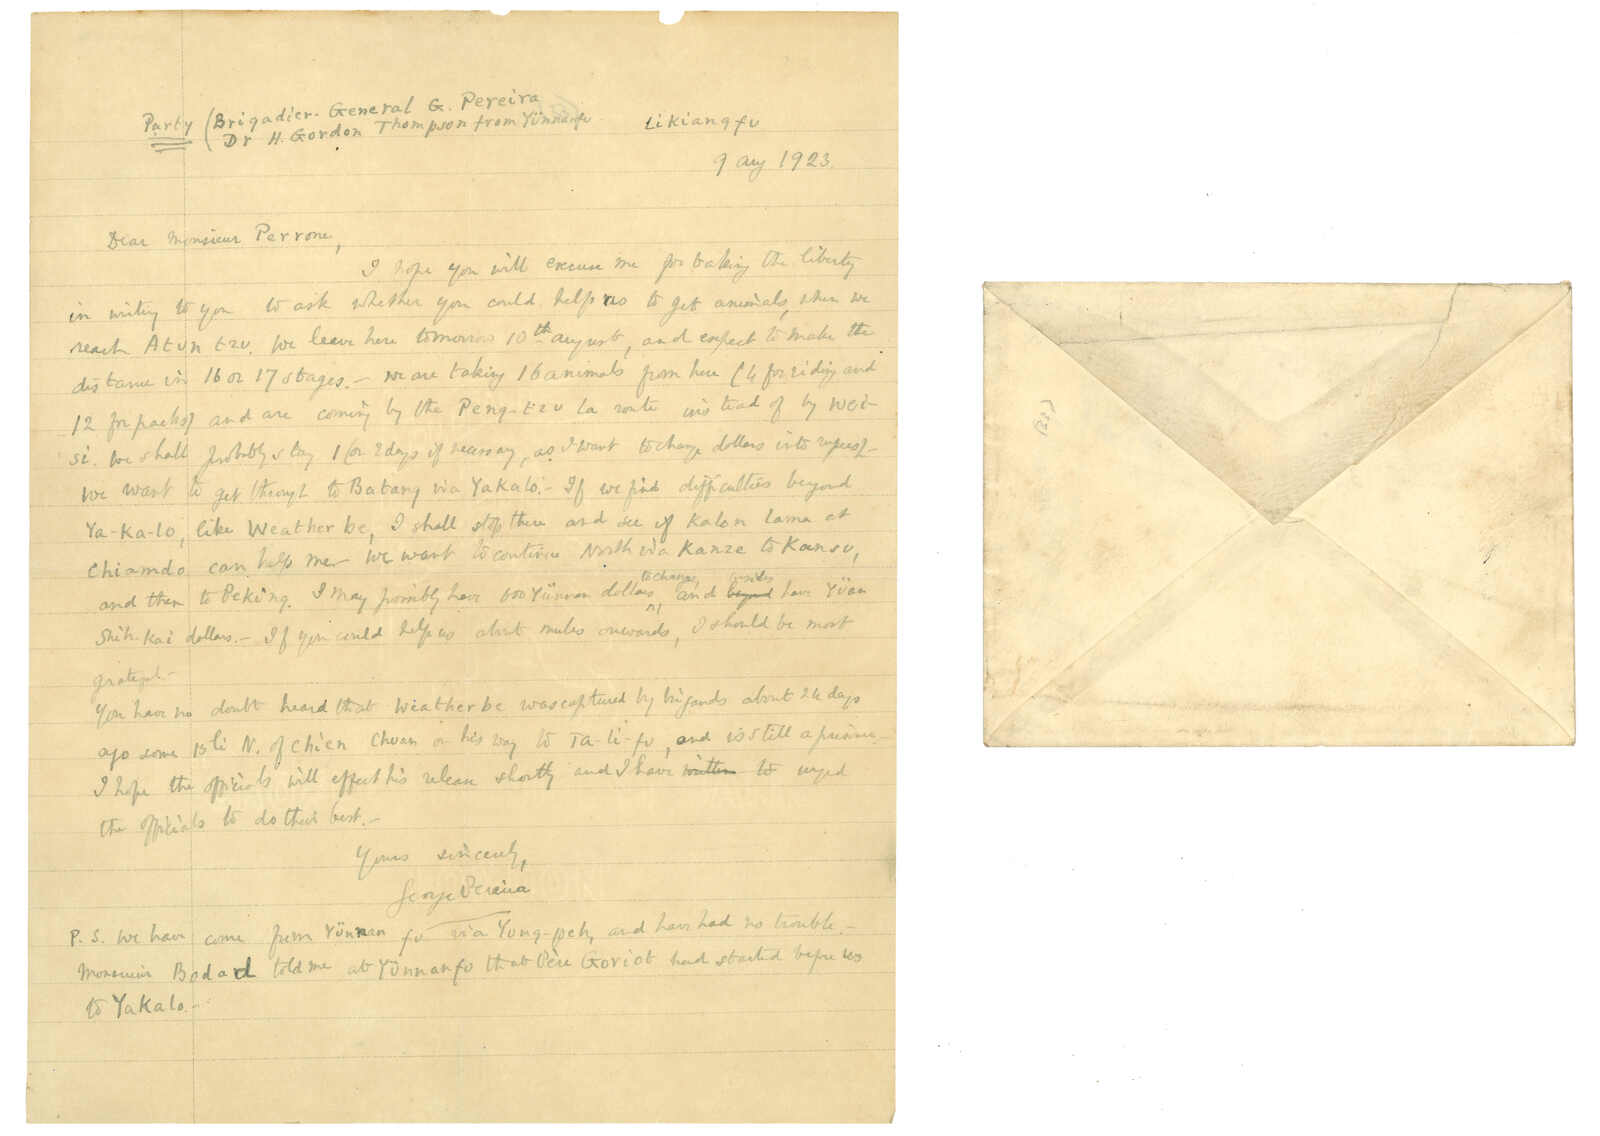 Party (Brigadier-General G. Pereira
Dr H. Gordon Thompson from Yünnanfu
Likiangfu
9 Aug 1923.
Dear Monsieur Perrone,
I hope you will excuse me for taking the liberty
in writing to you to ask whether you could help us to get animals, when we
reach Atuntzu. We leave here tomorrow 10th August, and expect to make the
distance in 16 or 17 stages.- We are taking 16 animals from here (4 for riding and
12 for packs) and are coming by the Peng-tzu la route instead of by Wei-
si. We shall probably stay 1 (or 2 days if necessary, as I want to change dollars into rupees).-
We want to get through to Batang via Yakalo.- If we find difficulties beyond
Ya-Ka-lo, like Weatherbe, I shall stop there and see if Kalon Lama at
Chiamdo can help me. We want to continue North via Kanze to Kansu,
and then to Peking. I may possibly have 600 Yünnan dollars to change, and beyond besides have Yüan
Shih-Kai dollars.- If you could help us about mules onwards, I should be most
grateful.-
You have no doubt heard that Weatherbe was captured by brigands about 24 days
ago some 15 li N. of Chien Chuan on his way to Ta-li-fu, and is still a prisoner.-
I hope the officials will effect his release shortly and I have written to urged
the officials to do their best.-
Yours sincerely,
George Pereira
P.S. We have come from Yünnan fu via Yung-peh, and have had no trouble.-
Monsieur Bodard told me at Yünnanfu that Père Goriot had started before us
to Yakalo.-